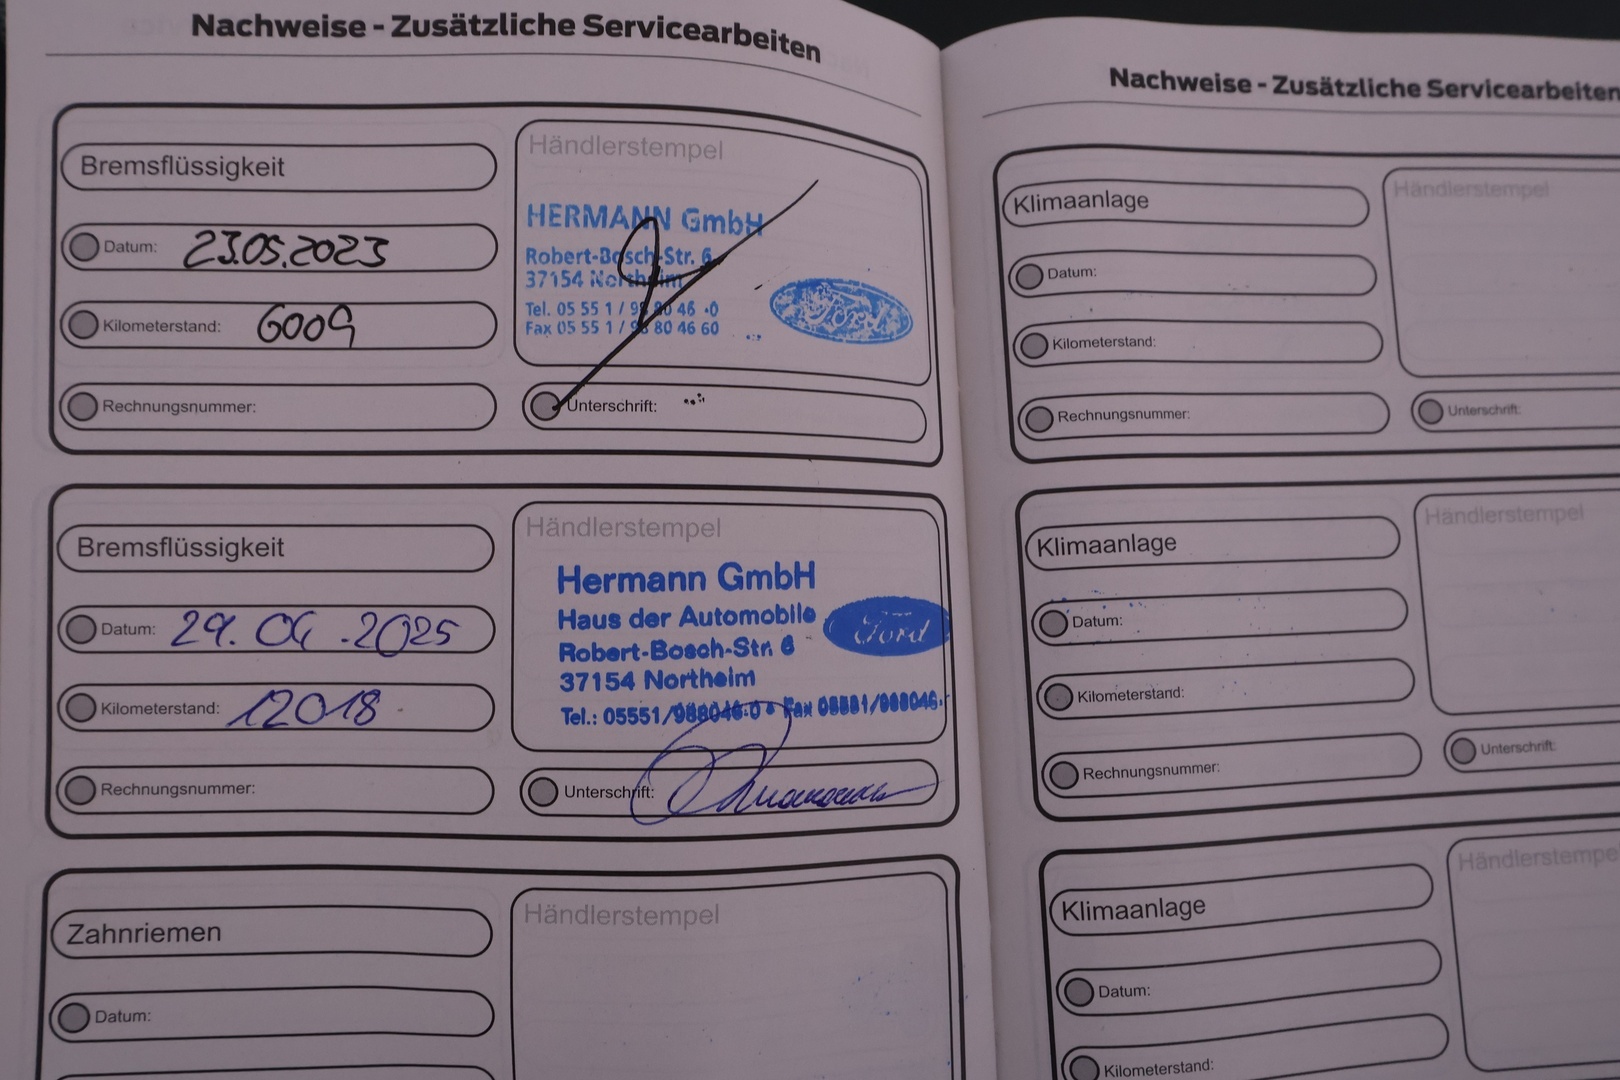 Nachweise - Zusätzliche Servicearbeiten
Bremsflüssigkeit
Datum: 23.05.2023
Kilometerstand: 6009
Rechnungsnummer:
Händlerstempel
HERMANN GmbH
Robert-Bosch-Str. 6
37154 Northeim
Tel. 05 55 1 / 98 80 46 -0
Fax 05 55 1 / 98 80 46 60
Ford
Unterschrift:
Bremsflüssigkeit
Datum: 29.04.2025
Kilometerstand: 12018
Rechnungsnummer:
Händlerstempel
Hermann GmbH
Haus der Automobile
Robert-Bosch-Str. 6
37154 Northeim
Tel.: 05551/988046-0 • Fax 05551/988046-
Ford
Unterschrift:
Zahnriemen
Datum:
Händlerstempel
Nachweise - Zusätzliche Servicearbeiten
Klimaanlage
Datum:
Kilometerstand:
Rechnungsnummer:
Händlerstempel
Unterschrift:
Klimaanlage
Datum:
Kilometerstand:
Rechnungsnummer:
Händlerstempel
Unterschrift:
Klimaanlage
Datum:
Kilometerstand:
Händlerstempe